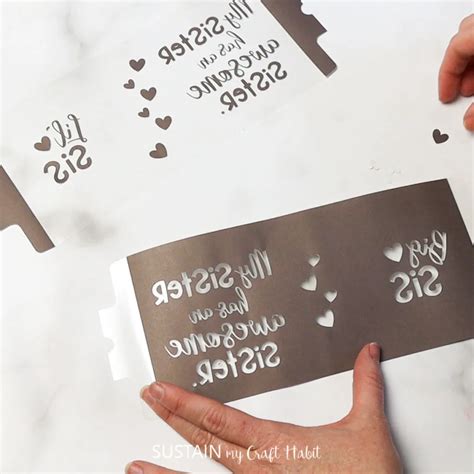 My SiSTER
has an
awesome
SiSTER.
Lil'
SiS
My SiSTER
has an
awesome
SiSTER.
Big
SiS
SUSTAIN my Craft Habit